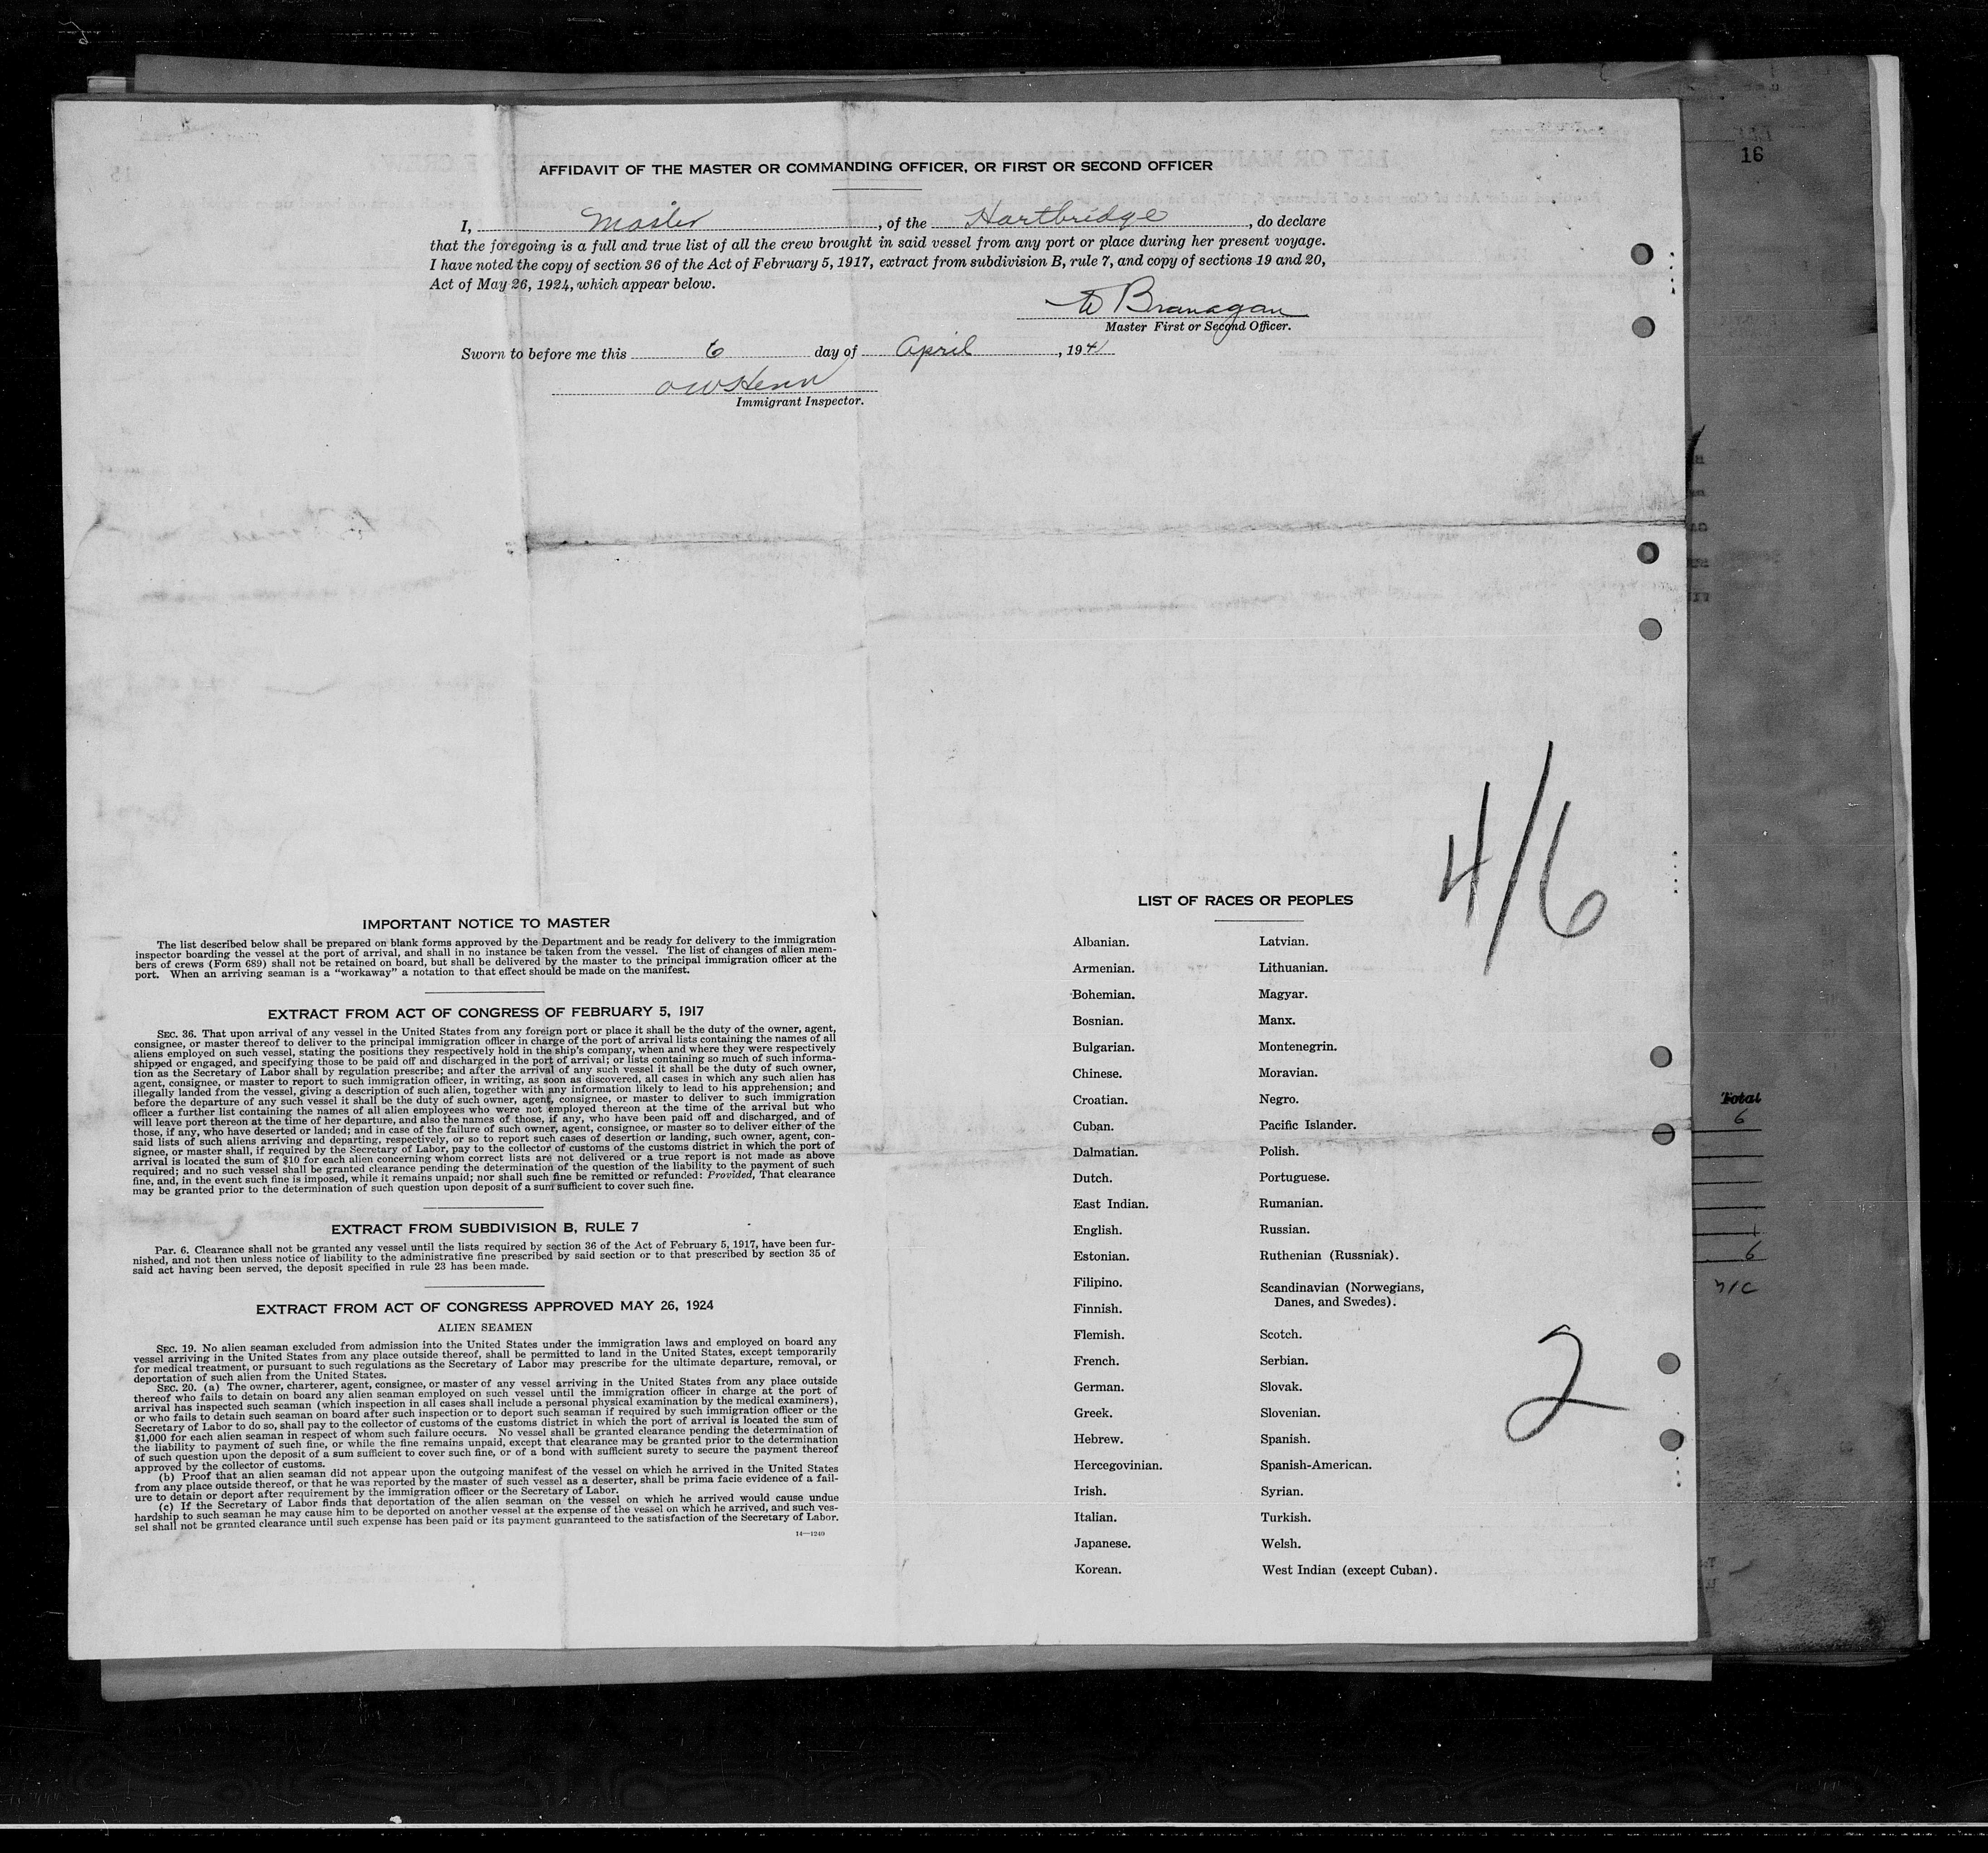 AFFIDAVIT OF THE MASTER OR COMMANDING OFFICER, OR FIRST OR SECOND OFFICER
I, Master, of the Hartbridge, do declare
that the foregoing is a full and true list of all the crew brought in said vessel from any port or place during her present voyage.
I have noted the copy of section 36 of the Act of February 5, 1917, extract from subdivision B, rule 7, and copy of sections 19 and 20,
Act of May 26, 1924, which appear below.
W Branagan
Master First or Second Officer.
Sworn to before me this 6 day of April, 1941
Immigrant Inspector.
16
4/6
IMPORTANT NOTICE TO MASTER
The list described below shall be prepared on blank forms approved by the Department and be ready for delivery to the immigration
inspector boarding the vessel at the port of arrival, and shall in no instance be taken from the vessel. The list of changes of alien mem-
bers of crews (Form 689) shall not be retained on board, but shall be delivered by the master to the principal immigration officer at the
port. When an arriving seaman is a "workaway" a notation to that effect should be made on the manifest.
EXTRACT FROM ACT OF CONGRESS OF FEBRUARY 5, 1917
SEC. 36. That upon arrival of any vessel in the United States from any foreign port or place it shall be the duty of the owner, agent,
consignee, or master thereof to deliver to the principal immigration officer in charge of the port of arrival lists containing the names of all
aliens employed on such vessel, stating the positions they respectively hold in the ship's company, when and where they were respectively
shipped or engaged, and specifying those to be paid off and discharged in the port of arrival; or lists containing so much of such informa-
tion as the Secretary of Labor shall by regulation prescribe; and after the arrival of any such vessel it shall be the duty of such owner,
agent, consignee, or master to report to such immigration officer, in writing, as soon as discovered, all cases in which any such alien has
illegally landed from the vessel, giving a description of such alien, together with any information likely to lead to his apprehension; and
before the departure of any such vessel it shall be the duty of such owner, agent, consignee, or master to deliver to such immigration
officer a further list containing the names of all alien employees who were not employed thereon at the time of the arrival but who
will leave port thereon at the time of her departure, and also the names of those, if any, who have been paid off and discharged, and of
those, if any, who have deserted or landed; and in case of the failure of such owner, agent, consignee, or master so to deliver either of the
said lists of such aliens arriving and departing, respectively, or so to report such cases of desertion or landing, such owner, agent, con-
signee, or master shall, if required by the Secretary of Labor, pay to the collector of customs of the customs district in which the port of
arrival is located the sum of $10 for each alien concerning whom correct lists are not delivered or a true report is not made as above
required; and no such vessel shall be granted clearance pending the determination of the question of the liability to the payment of such
fine, and, in the event such fine is imposed, while it remains unpaid; nor shall such fine be remitted or refunded: Provided, That clearance
may be granted prior to the determination of such question upon deposit of a sum sufficient to cover such fine.
EXTRACT FROM SUBDIVISION B, RULE 7
Par. 6. Clearance shall not be granted any vessel until the lists required by section 36 of the Act of February 5, 1917, have been fur-
nished, and not then unless notice of liability to the administrative fine prescribed by said section or to that prescribed by section 35 of
said act having been served, the deposit specified in rule 23 has been made.
EXTRACT FROM ACT OF CONGRESS APPROVED MAY 26, 1924
ALIEN SEAMEN
SEC. 19. No alien seaman excluded from admission into the United States under the immigration laws and employed on board any
vessel arriving in the United States from any place outside thereof, shall be permitted to land in the United States, except temporarily
for medical treatment, or pursuant to such regulations as the Secretary of Labor may prescribe for the ultimate departure, removal, or
deportation of such alien from the United States.
SEC. 20. (a) The owner, charterer, agent, consignee, or master of any vessel arriving in the United States from any place outside
thereof who fails to detain on board any alien seaman employed on such vessel until the immigration officer in charge at the port of
arrival has inspected such seaman (which inspection in all cases shall include a personal physical examination by the medical examiners),
or who fails to detain such seaman on board after such inspection or to deport such seaman if required by such immigration officer or the
Secretary of Labor to do so, shall pay to the collector of customs of the customs district in which the port of arrival is located the sum of
$1,000 for each alien seaman in respect of whom such failure occurs. No vessel shall be granted clearance pending the determination of
the liability to payment of such fine, or while the fine remains unpaid, except that clearance may be granted prior to the determination
of such question upon the deposit of a sum sufficient to cover such fine, or of a bond with sufficient surety to secure the payment thereof
approved by the collector of customs.
(b) Proof that an alien seaman did not appear upon the outgoing manifest of the vessel on which he arrived in the United States
from any place outside thereof, or that he was reported by the master of such vessel as a deserter, shall be prima facie evidence of a fail-
ure to detain or deport after requirement by the immigration officer or the Secretary of Labor.
(c) If the Secretary of Labor finds that deportation of the alien seaman on the vessel on which he arrived would cause undue
hardship to such seaman he may cause him to be deported on another vessel at the expense of the vessel on which he arrived, and such ves-
sel shall not be granted clearance until such expense has been paid or its payment guaranteed to the satisfaction of the Secretary of Labor.
14—1240
LIST OF RACES OR PEOPLES
Albanian.
Armenian.
Bohemian.
Bosnian.
Bulgarian.
Chinese.
Croatian.
Cuban.
Dalmatian.
Dutch.
East Indian.
English.
Estonian.
Filipino.
Finnish.
Flemish.
French.
German.
Greek.
Hebrew.
Hercegovinian.
Irish.
Italian.
Japanese.
Korean.
Latvian.
Lithuanian.
Magyar.
Manx.
Montenegrin.
Moravian.
Negro.
Pacific Islander.
Polish.
Portuguese.
Rumanian.
Russian.
Ruthenian (Russniak).
Scandinavian (Norwegians,
Danes, and Swedes).
Scotch.
Serbian.
Slovak.
Slovenian.
Spanish.
Spanish-American.
Syrian.
Turkish.
Welsh.
West Indian (except Cuban).
2
Total
6
6